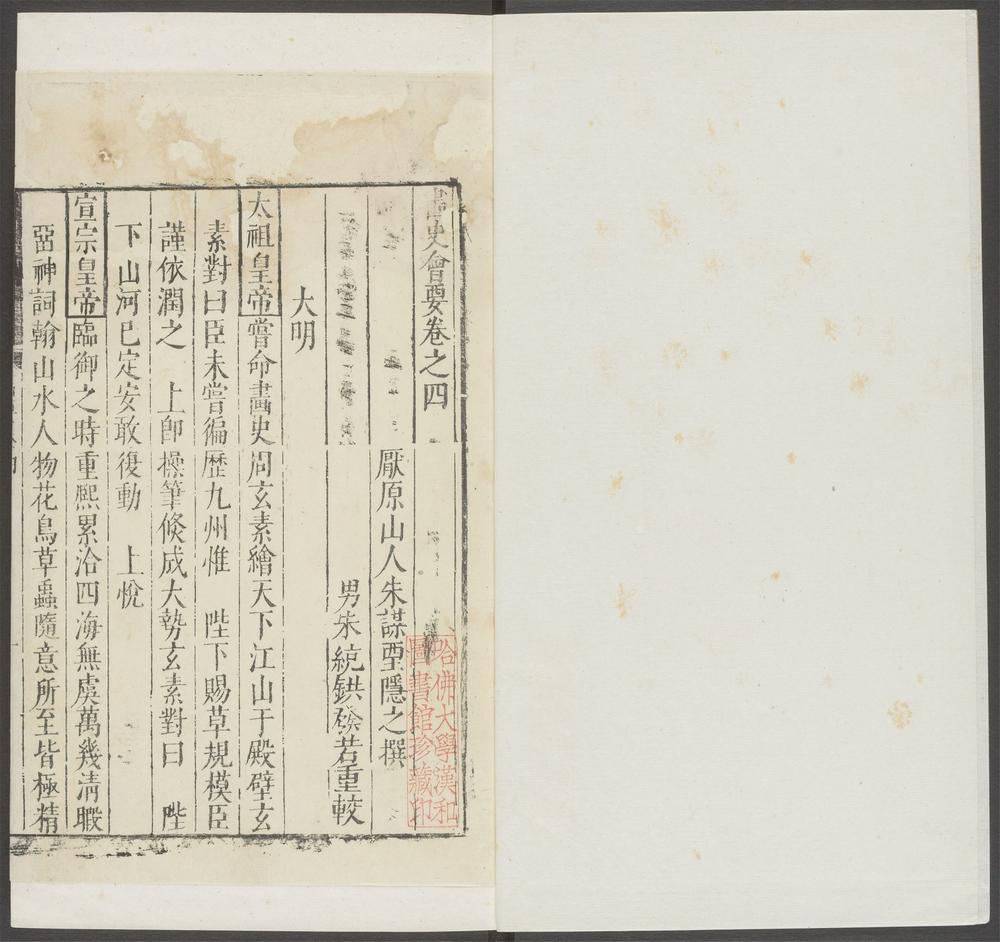 畫史會要卷之四
厭原山人朱謀垔隱之撰
男朱統鉷發若重較
大明
太祖皇帝嘗命畵史周玄素繪天下江山于殿壁玄
素對曰臣未嘗徧歷九州惟 陛下賜草規模臣
謹依潤之 上卽操筆倐成大勢玄素對曰 陛
下山河已定安敢復動 上悅
宣宗皇帝臨御之時重熙累洽四海無虞萬幾淸暇
畱神詞翰山水人物花鳥草蟲隨意所至皆極精
哈佛大學漢和
圖書館珍藏印